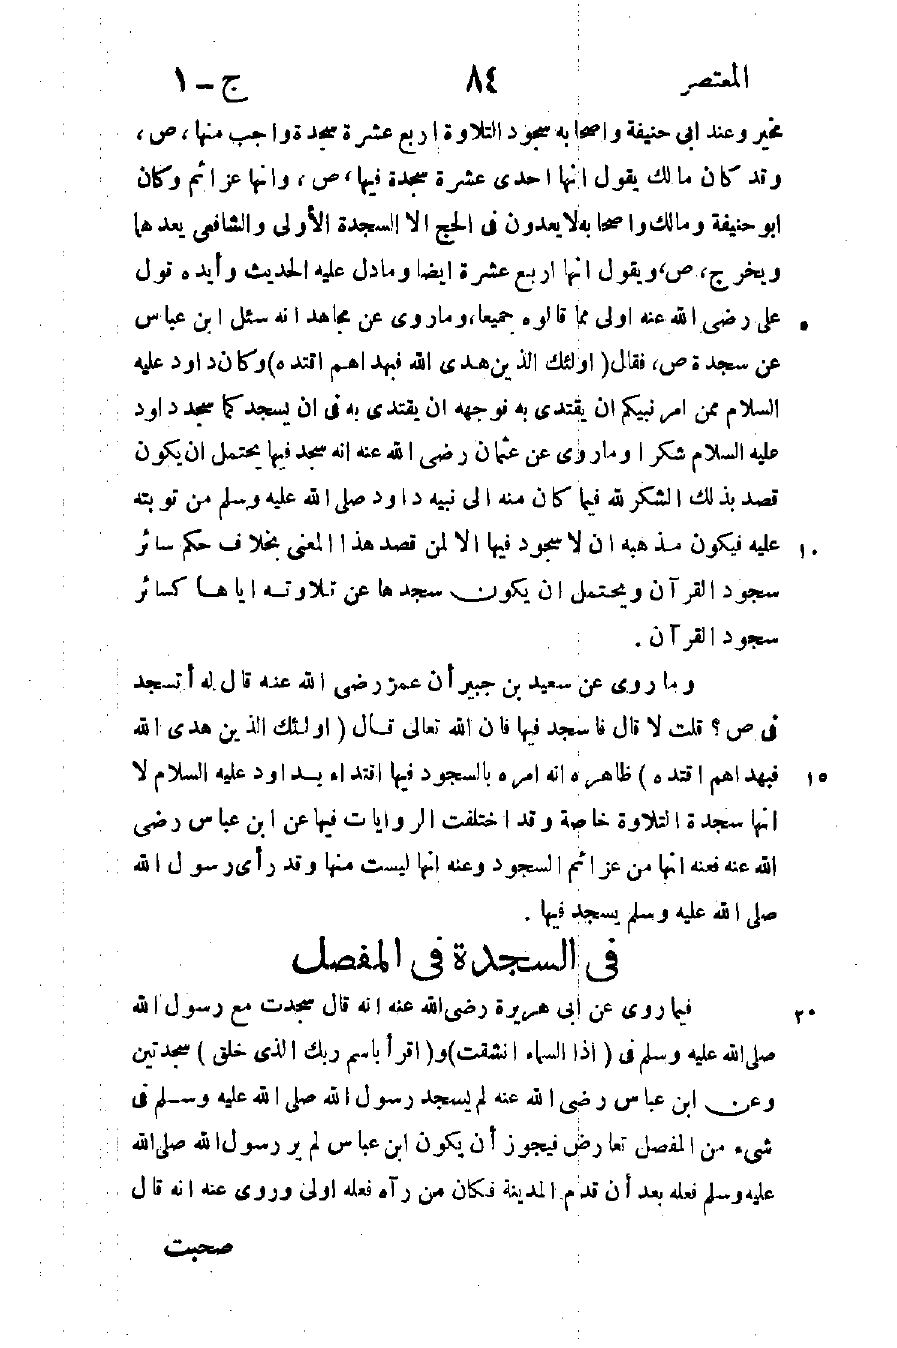 المعتصر ٨٤ ج - ١
مخير وعند ابى حنيفة واصحابه سجود التلاوة اربع عشرة سجدة واجب منها، ص،
وقد كان مالك يقول انها احدى عشرة سجدة فيها، ص، وانها عزائم وكان
ابو حنيفة ومالك واصحابه لا يعدون فى الحج الا السجدة الأولى والشافعى يعدها
ويخرج، ص، ويقول انها اربع عشرة ايضا ومادل عليه الحديث وأيده قول
على رضى الله عنه اولى مما قالوه جميعا، وماروى عن مجاهد انه سئل ابن عباس
عن سجدة ص، فقال ( اولئك الذين هدى الله فبهداهم اقتده ) وكان داود عليه
السلام ممن امر نبيكم ان يقتدى به نوجهه ان يقتدى به فى ان يسجد كما سجد داود
عليه السلام شكرا وماروى عن عثمان رضى الله عنه انه سجد فيها يحتمل ان يكون
قصد بذلك الشكر لله فيما كان منه الى نبيه داود صلى الله عليه وسلم من توبته
١٠ عليه فيكون مذهبه ان لا سجود فيها الا لمن قصد هذا المعنى بخلاف حكم سائر
سجود القرآن ويحتمل ان يكون سجدها عن تلاوته اياها كسائر
سجود القرآن .
وما روى عن سعيد بن جبير أن عمر رضى الله عنه قال له أتسجد
فى ص ؟ قلت لا قال فاسجد فيها فان الله تعالى قال ( اولئك الذين هدى الله
١٥ فبهداهم اقتده ) ظاهره انه امره بالسجود فيها اقتداء بداود عليه السلام لا
انها سجدة التلاوة خاصة وقد اختلفت الروايات فيها عن ابن عباس رضى
الله عنه فعنه انها من عزائم السجود وعنه انها ليست منها وقد رأى رسول الله
صلى الله عليه وسلم يسجد فيها .
فى السجدة فى المفصل
٢٠ فيما روى عن أبى هريرة رضى الله عنه انه قال سجدت مع رسول الله
صلى الله عليه وسلم فى ( اذا السماء انشقت ) و ( اقرأ باسم ربك الذى خلق ) سجدتين
وعن ابن عباس رضى الله عنه لم يسجد رسول الله صلى الله عليه وسلم فى
شىء من المفصل تعارض فيجوز أن يكون ابن عباس لم ير رسول الله صلى الله
عليه وسلم فعله بعد أن قدم المدينة فكان من رآه فعله اولى وروى عنه انه قال
صحبت